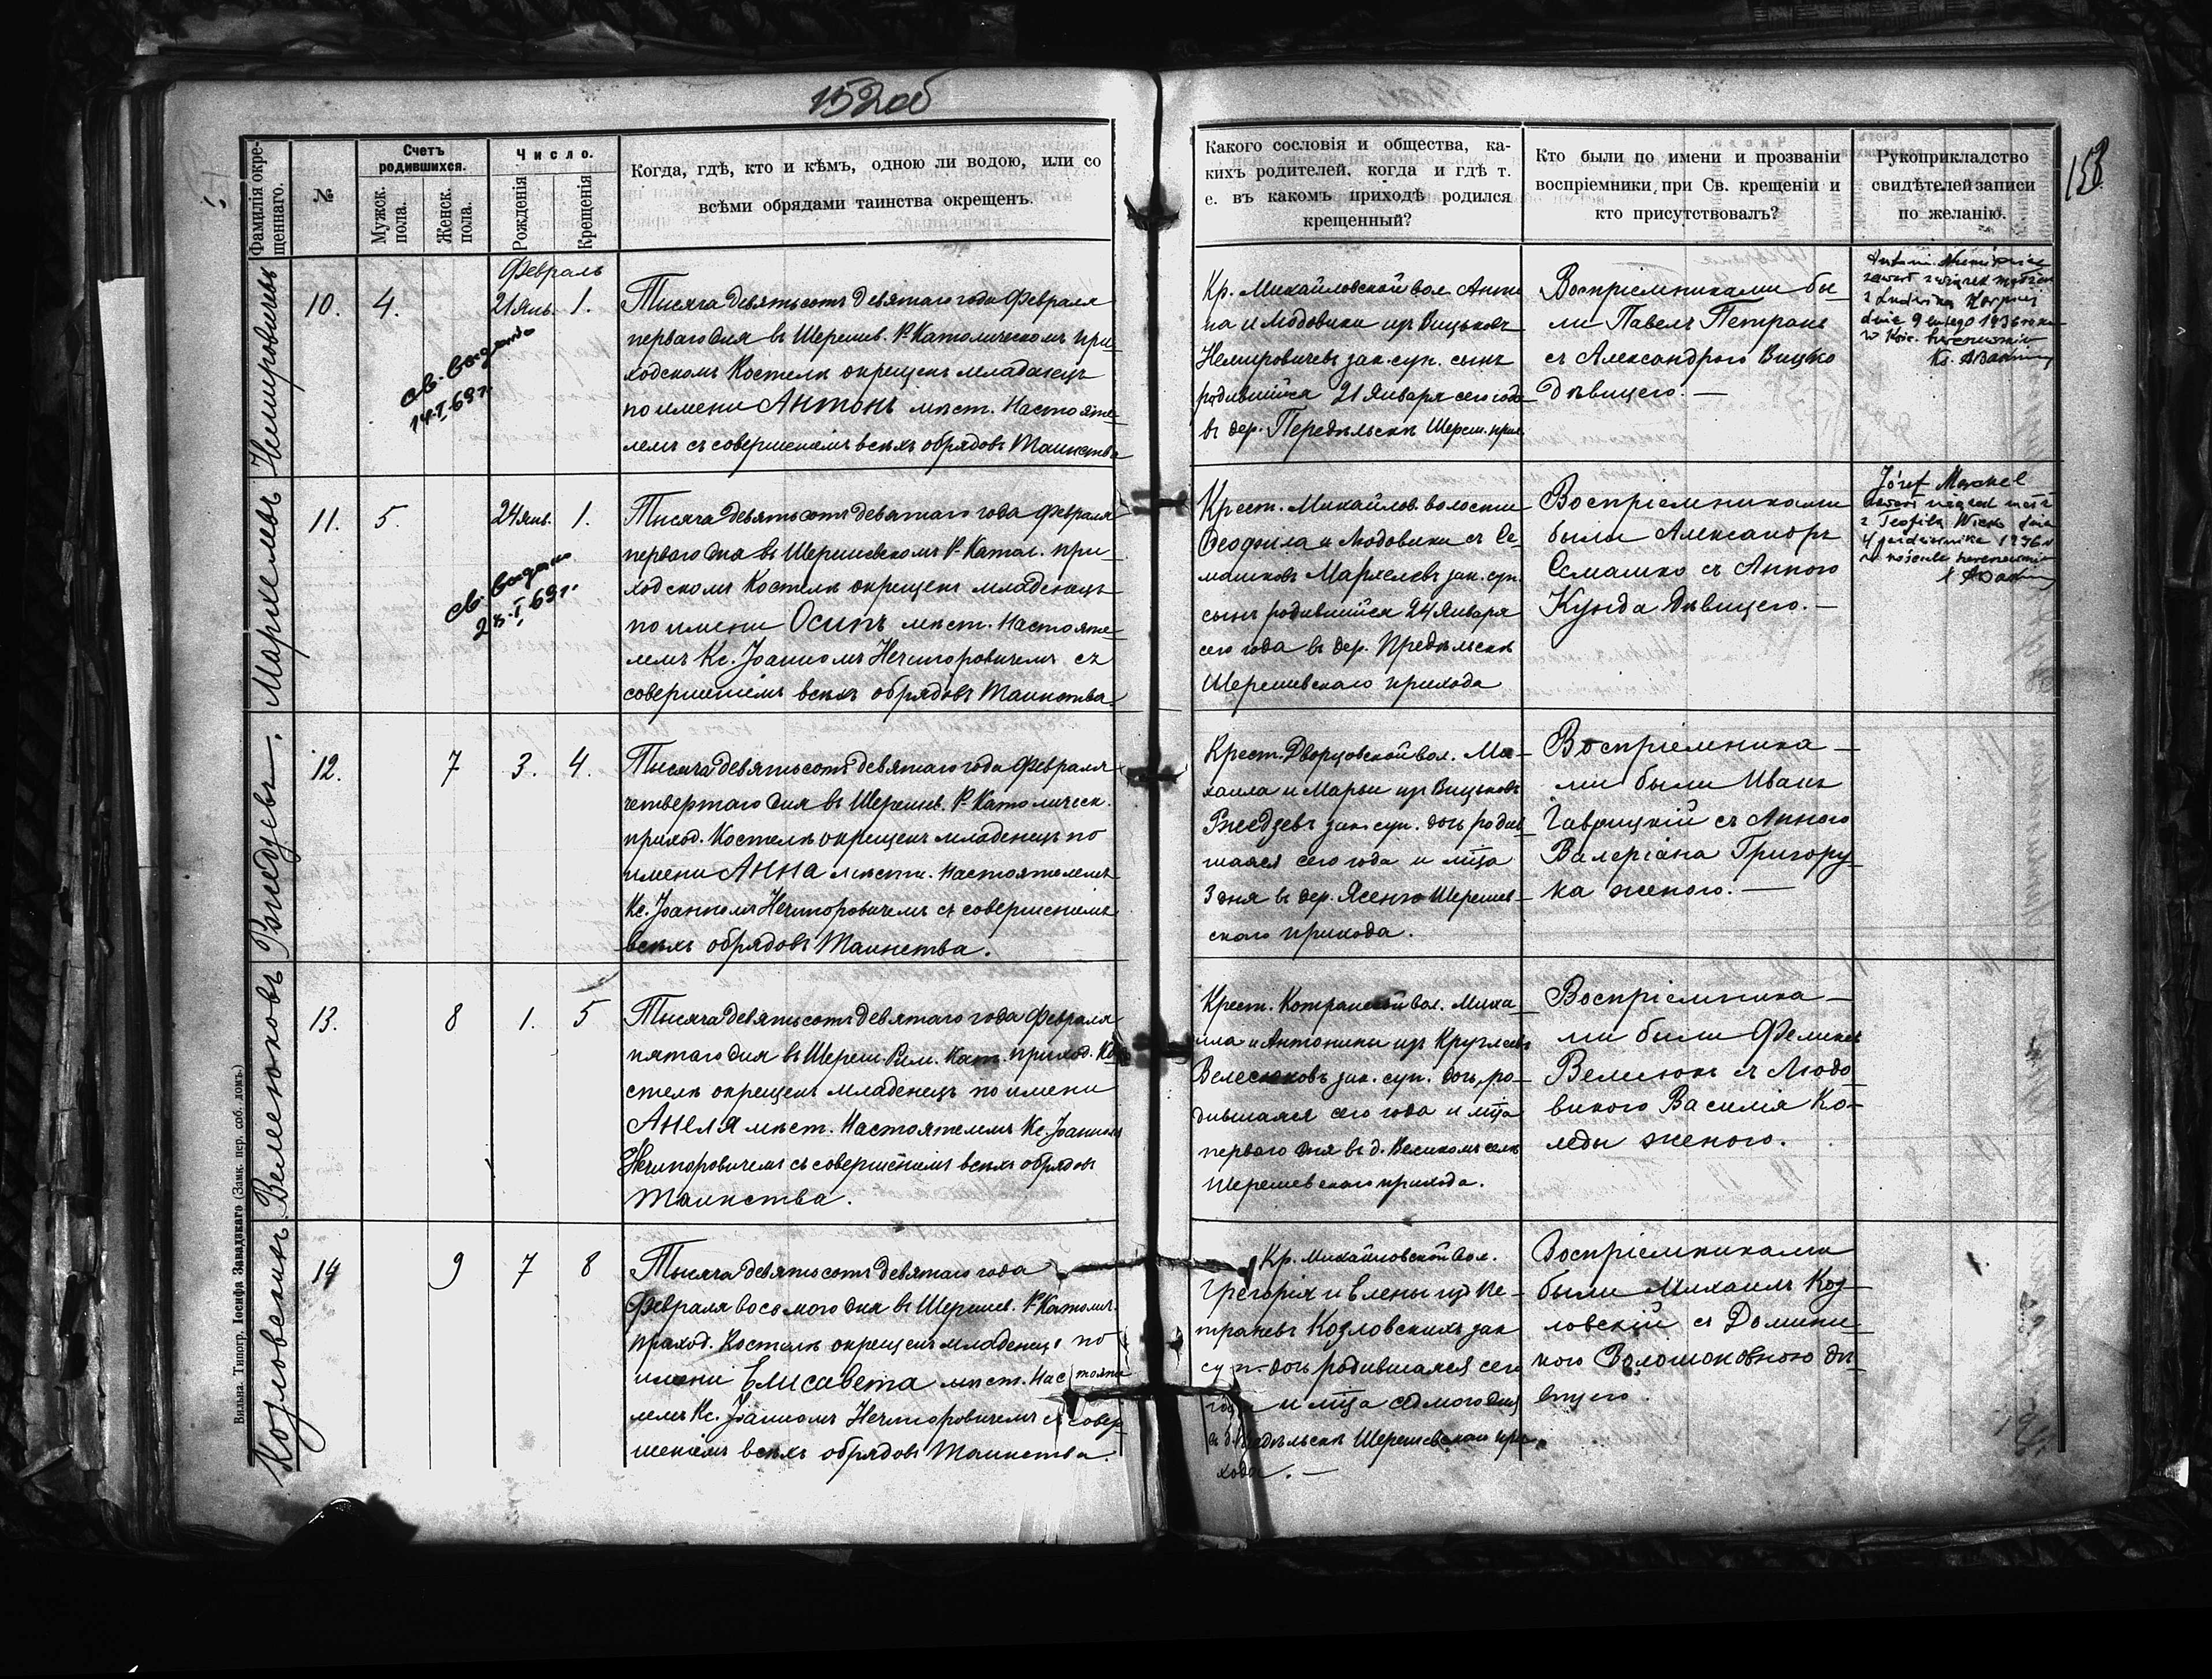 152об
153
Фамилія окре-
щеннаго.
№
Счетъ
родившихся.
Мужск.
пола.
Женск.
пола.
Число.
Рожденія
Крещенія
Когда, гдѣ, кто и кѣмъ, одною ли водою, или со
всѣми обрядами таинства окрещенъ.
Какого сословія и общества, ка-
кихъ родителей, когда и гдѣ т.
е. въ какомъ приходѣ родился
крещенный?
Кто были по имени и прозванію
воспріемники при Св. крещеніи и
кто присутствовалъ?
Рукоприкладство
свидѣтелей записи
по желанію.
Немировичъ
10.
4.
Февраль
21 Янв.
1.
св. выдано
14.I.69 г.
Тысяча девятьсотъ девятаго года Февраля
перваго дня въ Шерешев. Р-Католическомъ при-
ходскомъ Костелѣ окрещенъ младенецъ
по имени Антонъ мѣст. Настояте-
лемъ съ совершеніемъ всѣхъ обрядовъ Таинства
Кр. Михайловской вол. Анто
на и Людовики изъ Вицьковъ
Немировичевъ зак. суп. сынъ
родившійся 21 Января сего года
въ дер. Передѣльскѣ Шереш. прих.
Воспріемниками бы-
ли Павелъ Петрань
съ Александрою Вицко
дѣвицею. —
dnia 9 lutego 1936 roku
Мархелевъ
11.
5.
24 Янв.
1.
св. выдано
28.I.69 г.
Тысяча девятьсотъ девятаго года Февраля
перваго дня въ Шерешевскомъ Р-Катол. при-
ходскомъ Костелѣ окрещенъ младенецъ
по имени Осипъ мѣст. Настояте-
лемъ Кс. Іоанномъ Нечипоровичемъ съ
совершеніемъ всѣхъ обрядовъ Таинства.
Крест. Михайлов. волости
Ѳеофила и Людовики съ Се-
машковъ Мархелевъ зак. суп.
сынъ родившійся 24 Января
сего года въ дер. Предѣльскѣ
Шерешевскаго прихода
Воспріемниками
были Александръ
Семашко съ Анною
Кунда дѣвицею. —
Józef Marchel
z Teofilą Wicko dnia
4 października 1936 r
Вжедзевъ —.
12.
7
3.
4.
Тысяча девятьсотъ девятаго года Февраля
четвертаго дня въ Шерешев. Р-Католическ.
приход. Костелѣ окрещенъ младенецъ по
имени Анна мѣстн. Настоятелемъ
Кс. Іоанномъ Нечипоровичемъ съ совершеніемъ
всѣхъ обрядовъ Таинства.
Крест. Дворцовской вол. Ми-
хаила и Марьи изъ Вицьковъ
Вжедзевъ зак. суп. дочь родив-
шаяся сего года и мѣца
3 дня въ дер. Ясень Шерешев-
скаго прихода.
Воспріемника-
ми были Иванъ
Гаврицкій съ Анною
Валеріана Григору-
ка женою. —
Велесюковъ
13.
8
1.
5
Тысяча девятьсотъ девятаго года Февраля
пятаго дня въ Шереш. Рим. Кат. приход. Ко-
стелѣ окрещенъ младенецъ по имени
Анеля мѣст. Настоятелемъ Кс. Іоанномъ
Нечипоровичемъ съ совершеніемъ всѣхъ обрядовъ
Таинства.
Крест. Котранской вол. Миха-
ила и Антонины изъ Круглевъ
Велесюковъ зак. суп. дочь, ро-
дившаяся сего года и мѣца
перваго дня въ д. Великомъ селѣ
Шерешевскаго прихода.
Воспріемника-
ми были Феликсъ
Велесюкъ съ Людо-
викою Василія Ко-
леды женою.
Козловскихъ
14
9
7
8
Тысяча девятьсотъ девятаго года
Февраля восьмого дня въ Шерешев. Р-Католич.
приход. Костелѣ окрещенъ младенецъ по
имени Елисавета мѣст. Настояте
лемъ Кс. Іоанномъ Нечипоровичемъ съ совер-
шеніемъ всѣхъ обрядовъ Таинства.
Кр. Михайловской вол.
Грегорія и Елены изъ Пе-
траневъ Козловскихъ зак
суп. дочь родившаяся сего
года и мѣца седмого дня
въ д. Предѣльскѣ Шерешевскаго при-
хода. —
Воспріемниками
были Михаилъ Коз-
ловскій съ Домини-
кою Волошоковною дѣ-
вицею.
Вильна. Типогр. Іосифа Завадзкаго (Замк. пер. соб. домъ.)